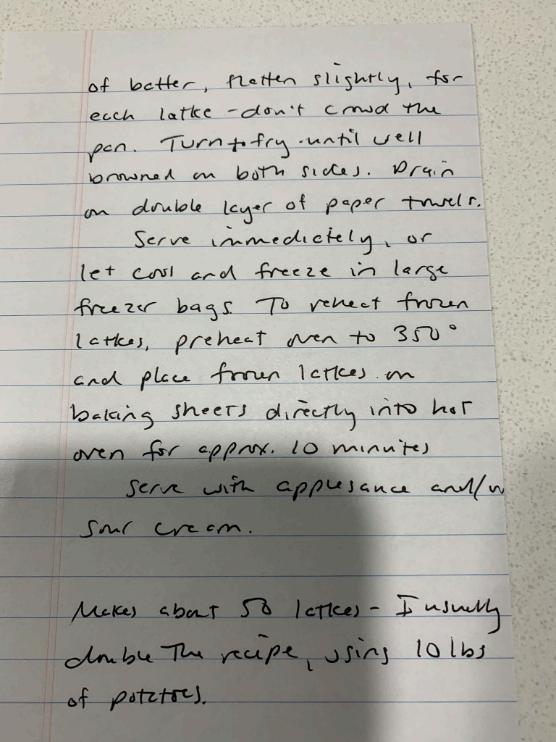 of batter, flatten slightly, for
each latke - don't crowd the
pan. Turn + fry until well
browned on both sides. Drain
on double layer of paper towels.
Serve immediately, or
let cool and freeze in large
freezer bags. To reheat frozen
latkes, preheat oven to 350°
and place frozen latkes on
baking sheets directly into hot
oven for approx. 10 minutes
Serve with applesauce and/or
sour cream.
Makes about 50 latkes - I usually
double the recipe, using 10 lbs
of potatoes.